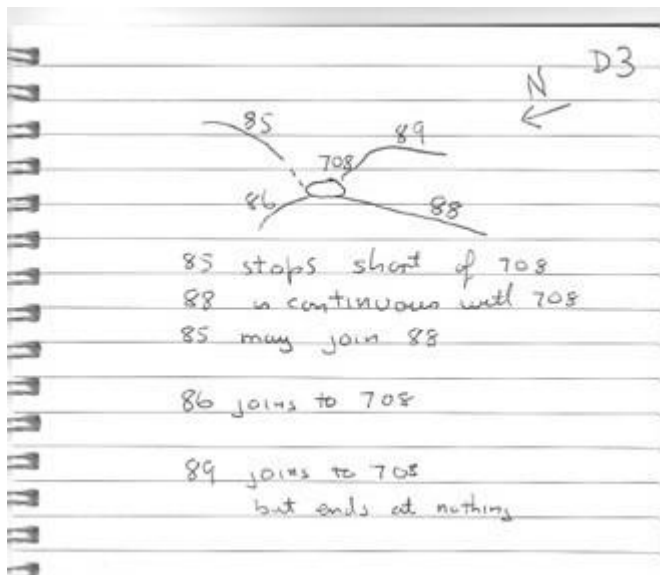 D3
N
85
89
708
86
88
85 stops short of 708
88 is continuous with 708
85 may join 88
86 joins to 708
89 joins to 708
but ends at nothing